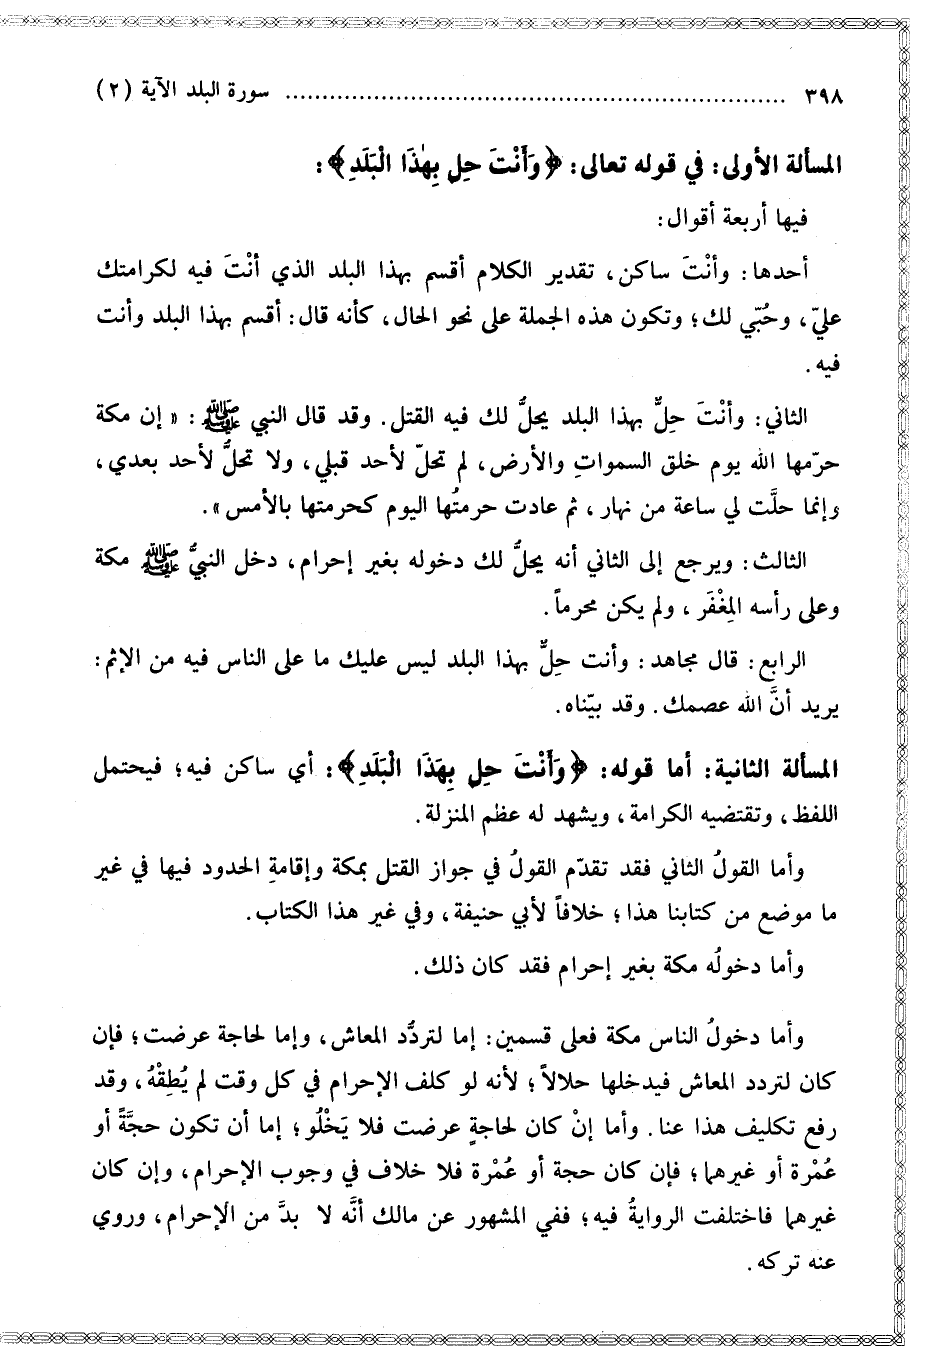 ٣٩٨ ........................................................ سورة البلد الآية (٢)
المسألة الأولى: في قوله تعالى: ﴿وَأَنْتَ حِلٌ بِهٰذَا الْبَلَدِ﴾:
فيها أربعة أقوال:
أحدها: وأنْتَ ساكن، تقدير الكلام أقسم بهذا البلد الذي أنْتَ فيه لكرامتك
عليّ، وحُبّي لك؛ وتكون هذه الجملة على نحو الحال، كأنه قال: أقسم بهذا البلد وأنت
فيه.
الثاني: وأنْتَ حِلٌّ بهذا البلد يحلُّ لك فيه القتل. وقد قال النبي ﷺ: «إن مكة
حرّمها الله يوم خلق السمواتِ والأرض، لم تحلّ لأحد قبلي، ولا تحلُّ لأحد بعدي،
وإنما حلَّت لي ساعة من نهار، ثم عادت حرمتُها اليوم كحرمتها بالأمس».
الثالث: ويرجع إلى الثاني أنه يحلُّ لك دخوله بغير إحرام، دخل النبيُّ ﷺ مكة
وعلى رأسه المِغْفَر، ولم يكن محرماً.
الرابع: قال مجاهد: وأنت حِلٌّ بهذا البلد ليس عليك ما على الناس فيه من الإثم:
يريد أنَّ الله عصمك. وقد بيّناه.
المسألة الثانية: أما قوله: ﴿وَأَنْتَ حِلٌ بِهَذَا الْبَلَدِ﴾: أي ساكن فيه؛ فيحتمل
اللفظ، وتقتضيه الكرامة، ويشهد له عظم المنزلة.
وأما القولُ الثاني فقد تقدّم القولُ في جواز القتل بمكة وإقامةِ الحدود فيها في غير
ما موضع من كتابنا هذا؛ خلافاً لأبي حنيفة، وفي غير هذا الكتاب.
وأما دخولُه مكة بغير إحرام فقد كان ذلك.
وأما دخولُ الناس مكة فعلى قسمين: إما لتردُّد المعاش، وإما لحاجة عرضت؛ فإن
كان لتردد المعاش فيدخلها حلالاً؛ لأنه لو كلف الإحرام في كل وقت لم يُطِقْهُ، وقد
رفع تكليف هذا عنا. وأما إنْ كان لحاجةٍ عرضت فلا يَخْلُو؛ إما أن تكون حجَّةً أو
عُمْرة أو غيرهما؛ فإن كان حجة أو عُمْرة فلا خلاف في وجوب الإحرام، وإن كان
غيرهما فاختلفت الروايةُ فيه؛ ففي المشهور عن مالك أنَّه لا بدَّ من الإحرام، وروي
عنه تركه.